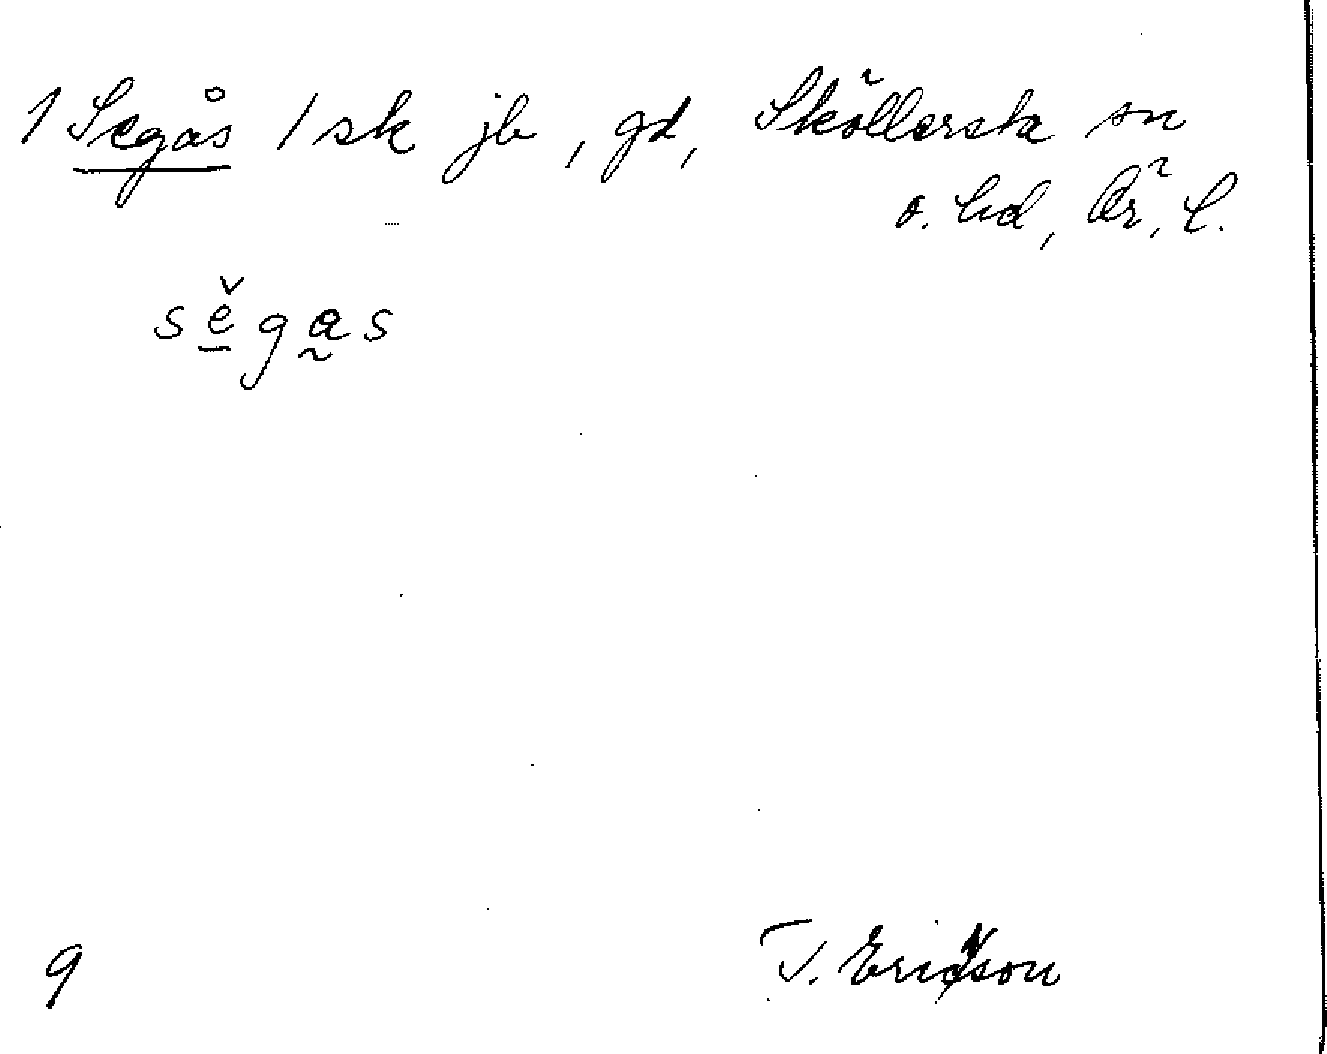 1 Segås 1 sk jb, gd, Sköllersta sn
o. hd, Ör. l.
sĕga̰s
9
T. Ericson